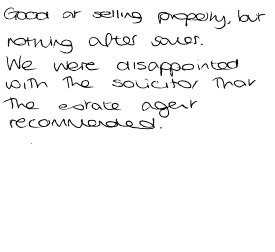 Good at selling property, but
nothing after sales.
We were disappointed
with the solicitor that
the estate agent
recommended.